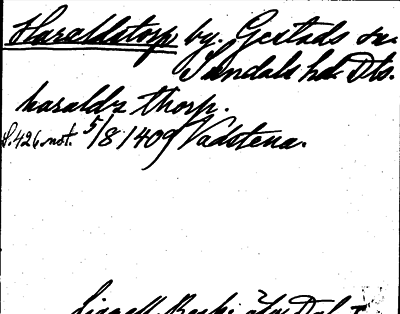 Haraldstorp by. Gestads sn.
Sundals hd. Dls.
haraldz thorp.
S.426.not. 5/8 1409 Vadstena.